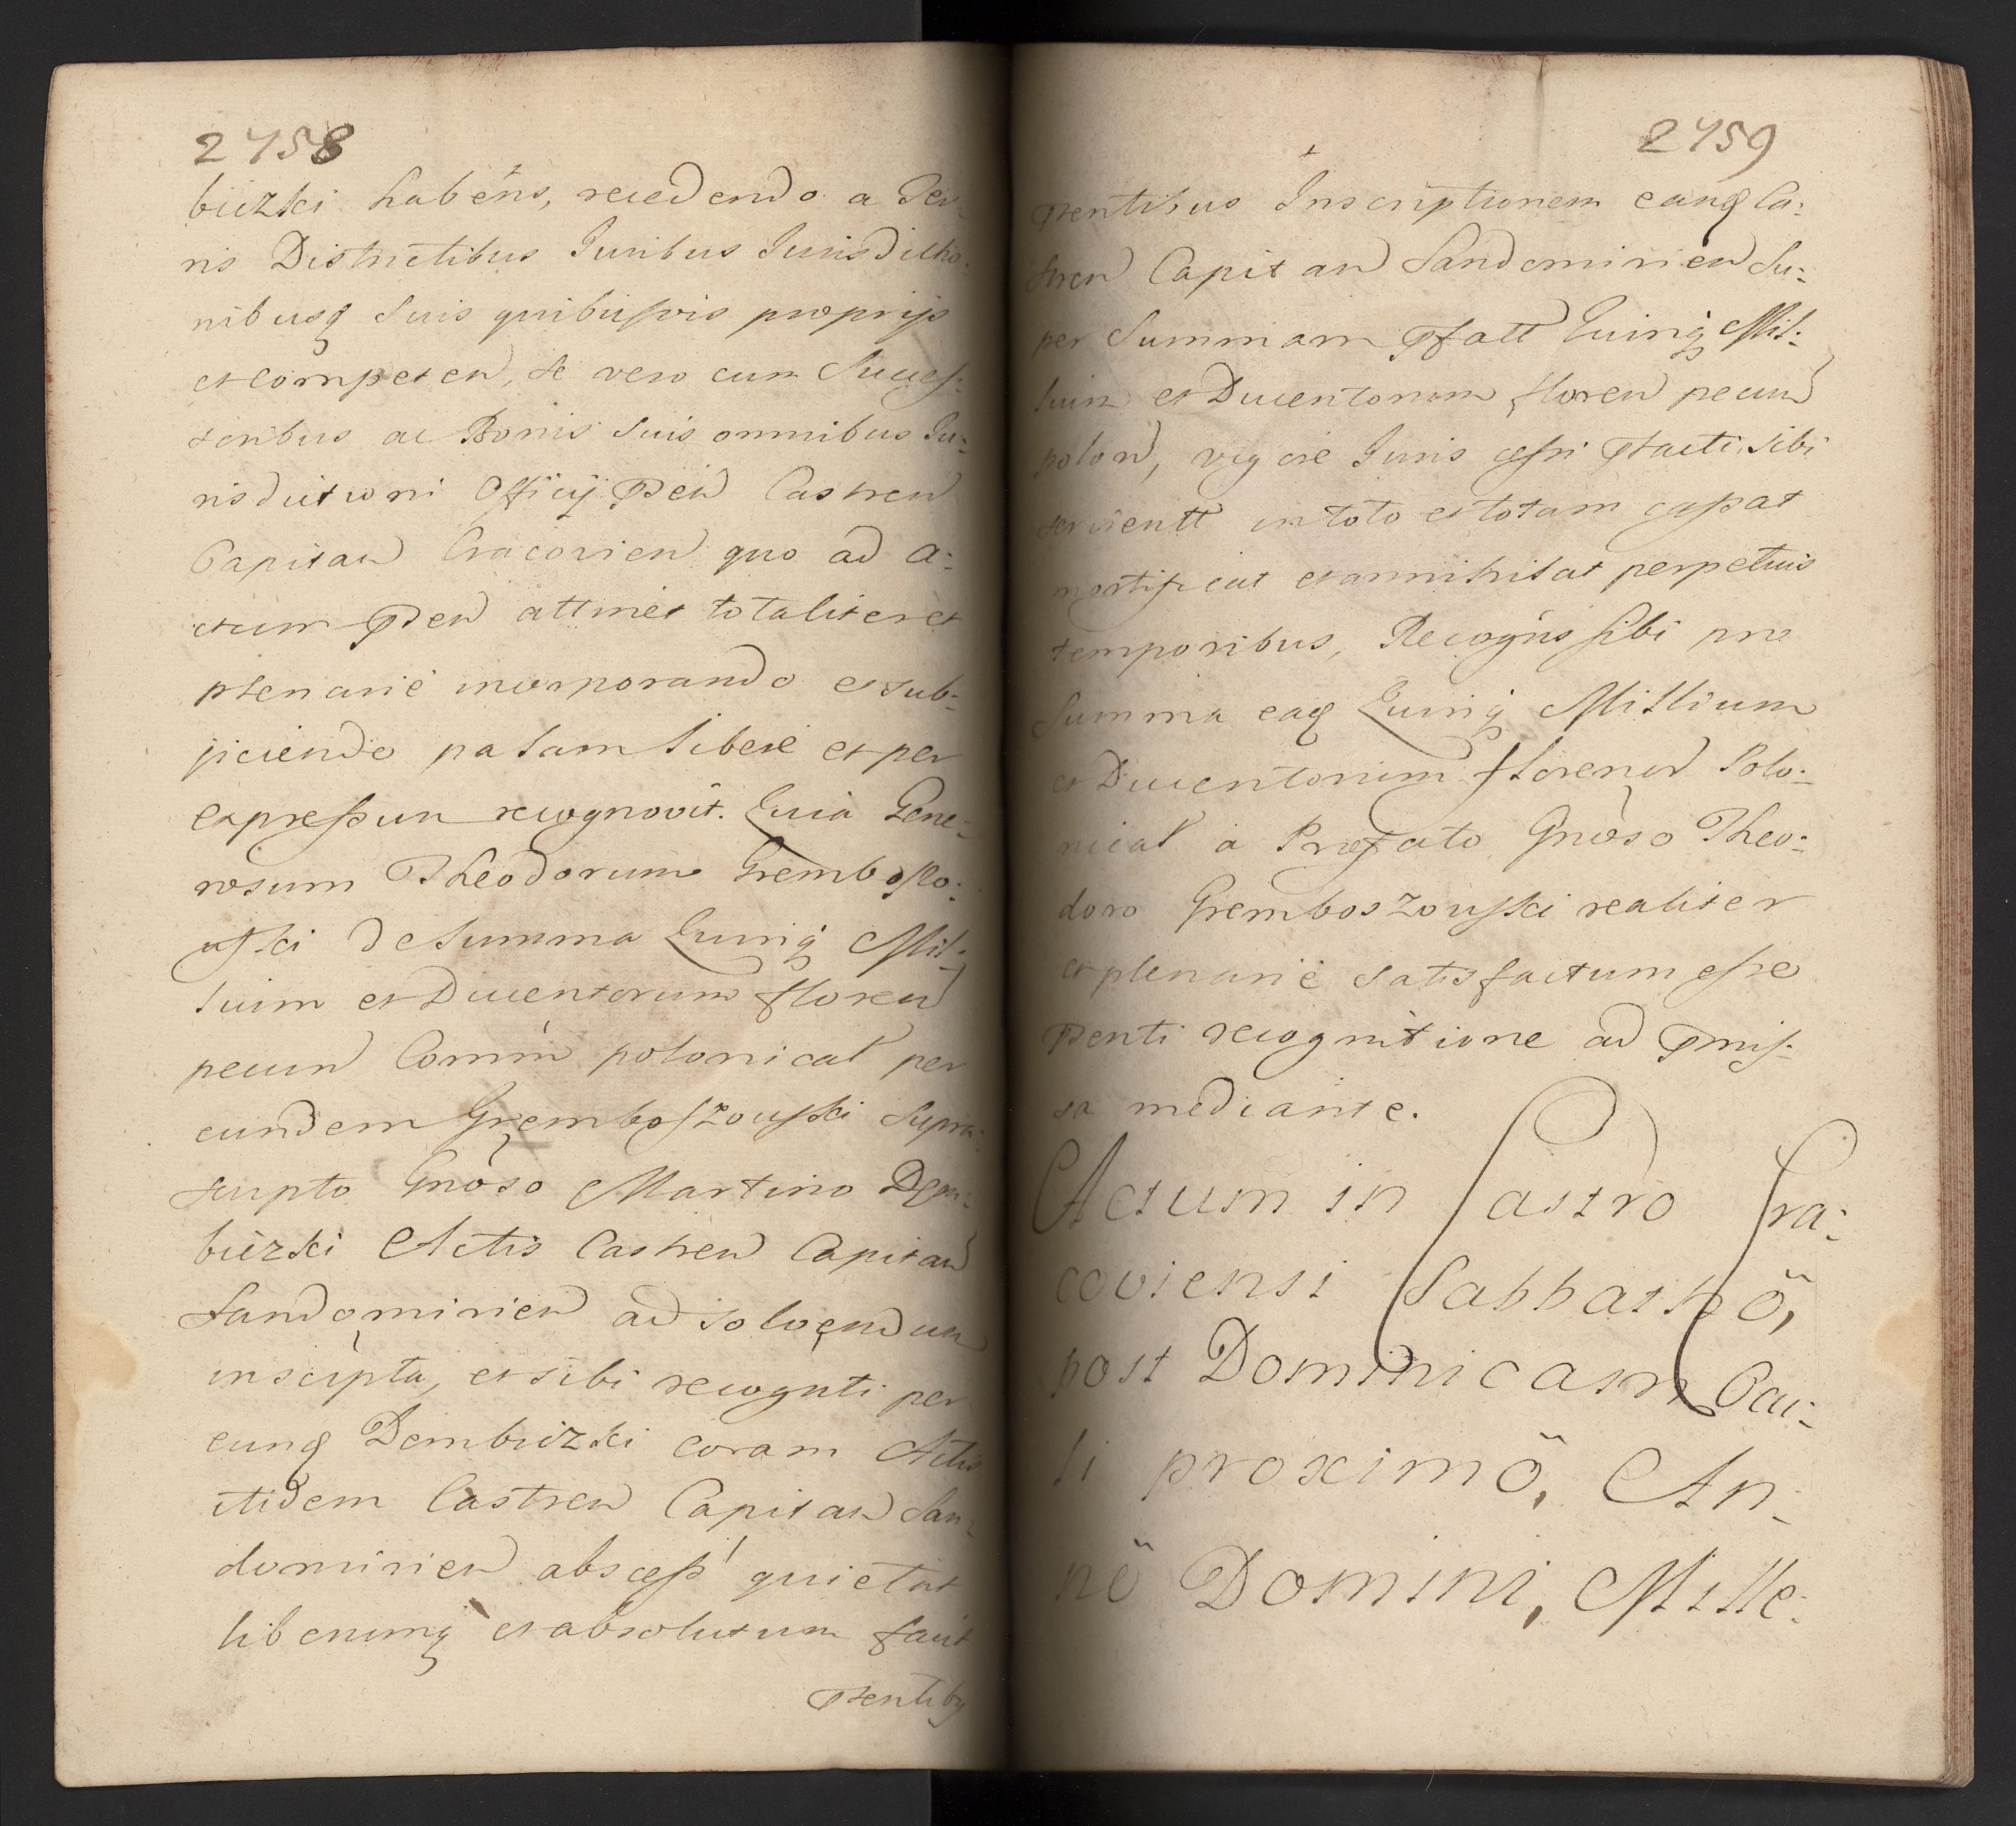 2458
buzki habens, recedendo a Ter-
ris Districtibus Juribus Jurisdictio-
nibusq suis quibusvis proprijs
et competen, se vero cum Succes-
soribus ac Bonis suis omnibus Ju-
risdictioni Officij Pñen Castren
Capitan Cracovien quo ad a-
ctum Pñen attinet totaliter et
plenarie incorporando et sub-
jiciendo palam libere et per
expressum recognovit. Quia Gene-
rosum Theodorum Grembosso-
wski de Summa Quinq Mil-
lium et Ducentorum floren
pecun Comm̃ polonical per
eundem Gremboszowski Supra
scripto Gnoso Martino Dem-
buzki Actis Castren Capitan
Sandomirien ad solvendum
inscripta, et sibi recognti per
eunq Dembuzki coram Actis
itidem Castren Capitan San-
domirien abscess quietat
liberumq et absolutum facit
Psentibq
2459
Psentibus Inscriptionem eanq Ca-
stren Capitan Sandomirien Su-
per Summam Pfatt Quinq Mil-
lium et Ducentorum floren pecun
polon, vigore Juris cessi Pfacti, sibi
servientt in toto et totam cassat
mortificat et annihilat perpetuis
temporibus, Recogns sibi pro
Summa eaq Quinq Millium
et Ducentorum florenor Polo-
nical a Præfato Gnoso Theo-
doro Gremboszowski realiter
et plenarie satisfactum esse
Psenti recognitione ad Pmis-
sa mediante.
Actum in Castro Cra-
coviensi Sabbatho,
post Dominicam Ocu-
li proximo, An-
no Domini, Mille-